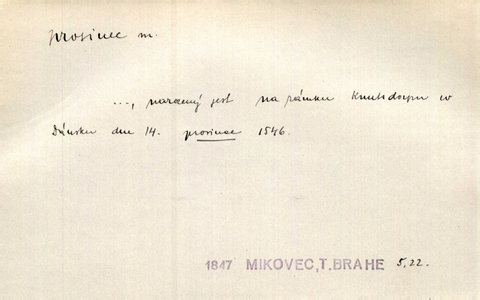 prosinec m.
..., narozený jest na zámku Knutsdorpu w
Dánsku dne 14. prosince 1546.
1847 MIKOVEC,T.BRAHE 5,22.